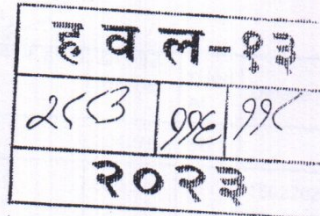 हवल-१३
२८८३ ११६ ११८
२०२३